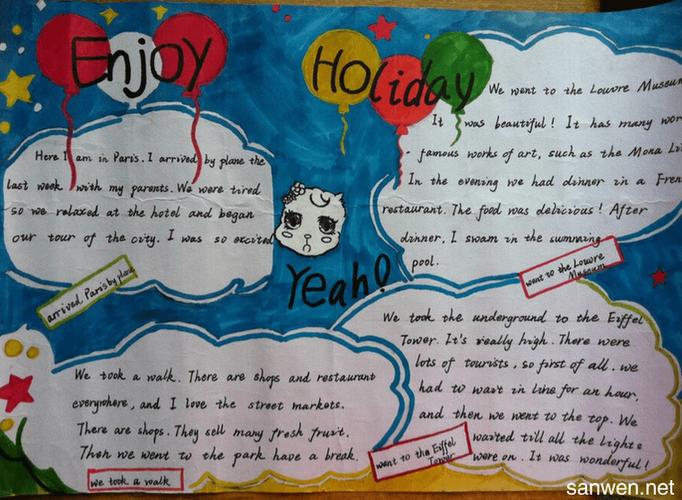 Enjoy Holiday
Here I am in Paris. I arrived by plane the
last week with my parents. We were tired
so we relaxed at the hotel and began
our tour of the city. I was so excited
arrived Paris by plane
Yeah!
We went to the Louvre Museum
It was beautiful! It has many wor
famous works of art, such as the Mona Li
In the evening we had dinner in a Fren
restaurant. The food was delicious! After
dinner, I swam in the swmming
pool.
went to the Louvre
Museum
We took the underground to the Eiffel
Tower. It's really high. There were
lots of tourists, so first of all, we
had to wait in line for an hour,
and then we went to the top. We
waited till all the lights
were on. It was wonderful!
went to the Eiffel
Tower
We took a walk. There are shops and restaurant
everywhere, and I love the street markets.
There are shops. They sell many fresh fruit.
Then we went to the park have a break.
we took a walk
sanwen.net